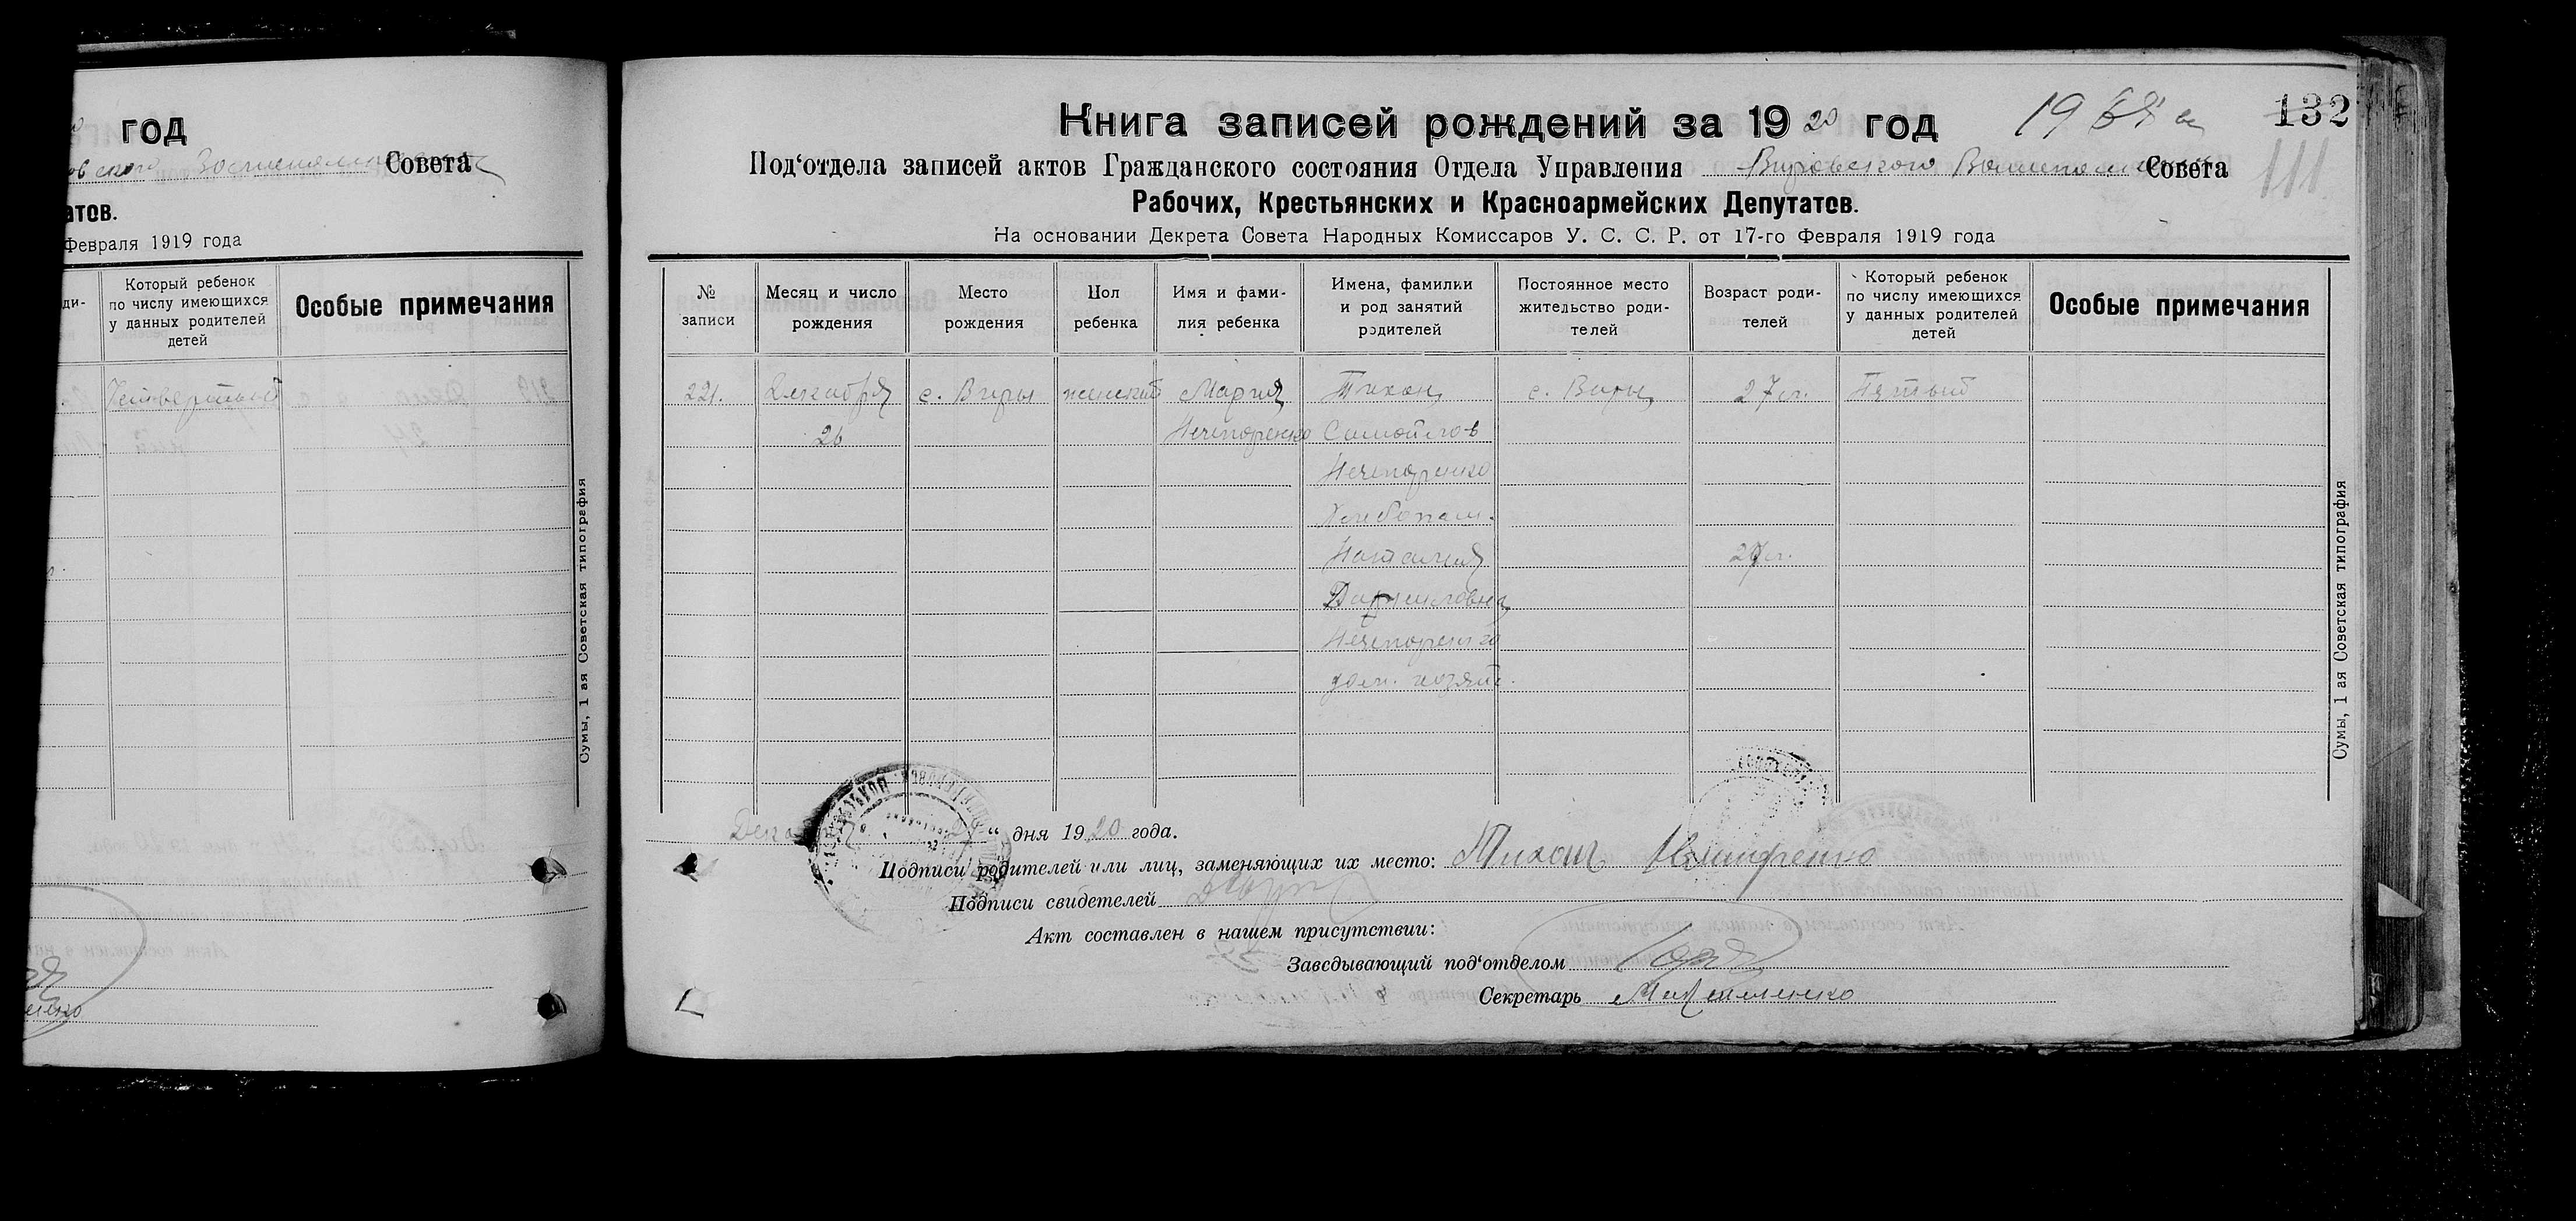 год
Совета
атов.
Февраля 1919 года
ди-
Который ребенок
по числу имеющихся
у данных родителей
детей
Особые примечания
Четвертый
Сумы, 1 ая Советская типография
132
111
Книга записей рождений за 1920 год
Под‘отдела записей актов Гражданского состояния Отдела Управления Вировского Совета
Рабочих, Крестьянских и Красноармейских Депутатов.
На основании Декрета Совета Народных Комиссаров У. С. С. Р. от 17-го Февраля 1919 года
№
записи
Месяц и число
рождения
Место
рождения
Пол
ребенка
Имя и фами-
лия ребенка
Имена, фамилии
и род занятий
родителей
Постоянное место
жительство роди-
телей
Возраст роди-
телей
Который ребенок
по числу имеющихся
у данных родителей
детей
Особые примечания
221. Декабря с. Виры женский Мария Тихон с. Виры 27 л. Пятый
26 Нечипоренко Самойлов
Нечипоренко
Хлебопаш.
Наталия
Даниловна
Нечипоренко
дом. хозяйс.
Сумы, 1 ая Советская типография
“ дня 1920 года.
Подписи родителей или лиц, заменяющих их место: Тихон
Подписи свидетелей
Акт составлен в нашем присутствии:
Заведывающий под‘отделом
Секретарь